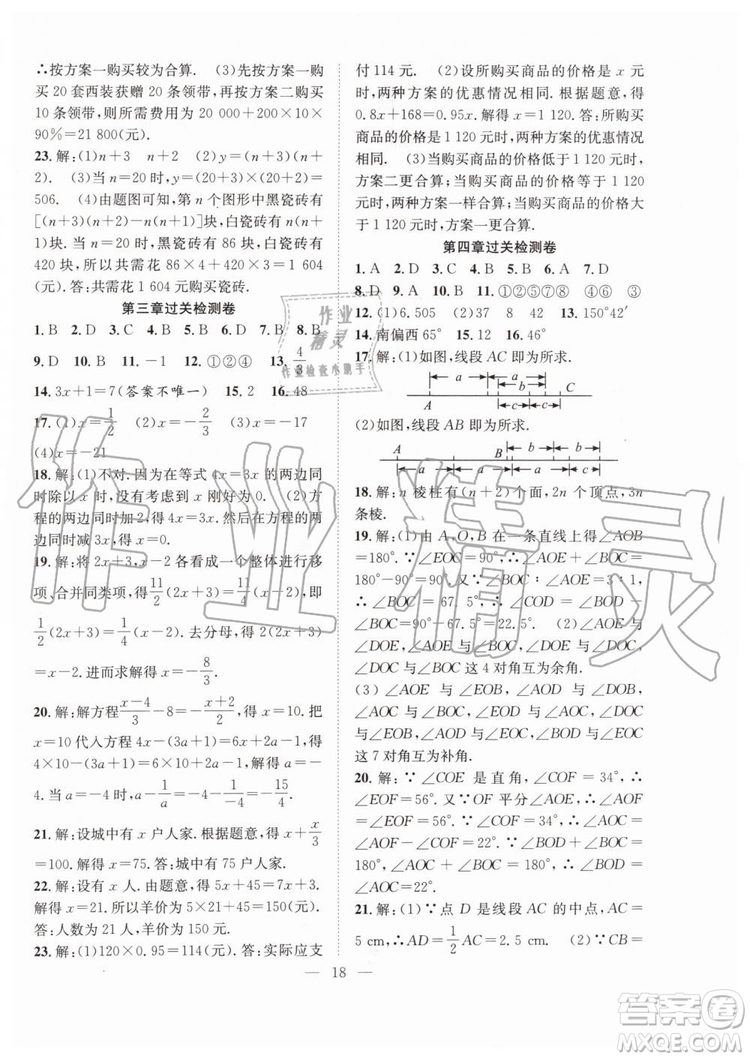 ∴按方案一购买较为合算. (3)先按方案一购
买 20 套西装获赠 20 条领带,再按方案二购买
10 条领带,则所需费用为 20 000+200×10×
90%=21 800(元).
23. 解:(1)n+3 n+2 (2)y=(n+3)(n+
2) (3)当 n=20 时,y=(20+3)×(20+2)=
506. (4)由题图可知,第 n 个图形中黑瓷砖有
[(n+3)(n+2)-n(n+1)]块,白瓷砖有 n(n+
1)块,当 n=20 时,黑瓷砖有 86 块,白瓷砖有
420 块,所以共需花 86×4+420×3=1 604
(元).答:共需花 1 604 元购买瓷砖.
第三章过关检测卷
1. B 2. D 3. C 4. B 5. B 6. D 7. B 8. B
9. D 10. D 11. -1 12. ①②④ 13. 4/3
14. 3x+1=7(答案不唯一) 15. 2 16. 48
17. (1)x=1/2 (2)x=-2/3 (3)x=0
(4)x=-21
18. 解:(1)不对.因为在等式 4x=3x 的两边同
时除以 x,没有注意到 x 刚好为 0. (2)方
程的两边同时加 2,得 4x=3x,然后在方程的两边同
时减 3x,得 x=0.
19. 解:将 2x+1,x-2 各看成一个整体进行移
项、合并同类项,得 11/2(2x+1)=11/2(x-2),即
1/2(2x+3)=1/2(x-2).去分母,得 2(2x+3)
=x-2.进而求解得 x=-8/3.
20. 解:解方程(x-4)/3-8=-(x+2)/2,得 x=10.把
x=10 代入方程 4x-(3a+1)=6x+2a-1,得
4×10-(3a+1)=6×10+2a-1,解得 a=
-4.当 a=-4 时,
21. 解:设城中有 x 户人家.根据题意,得 x+x/3
=100.解得 x=75.答:城中有 75 户人家.
22. 解:设有 x 人.由题意,得 5x+45=7x+3.
解得 x=21.所以羊价为 5×21+45=150(元).
答:人数为 21 人,羊价为 150 元.
23. 解:(1)120×0.95=114(元).答:实际应支
付 114 元. (2)设所购买商品的价格是 x 元
时,两种方案的优惠情况相同.根据题意,得
0.8x+168=0.95x.解得 x=1 120.答:所购买
商品的价格是 1 120 元时,两种方案的优惠情况
相同. (3)当购买商品的价格低于 1 120 元时,
方案二更合算;当购买商品的价格等于 1 120
元时,两种方案一样合算;当购买商品的价格
大于 1 120 元时,方案一更合算.
第四章过关检测卷
1. A 2. D 3. B 4. C 5. D 6. B 7. C
8. D 9. D 10. B 11. ①②⑤⑦⑧ ④⑥ ③
12. (1)6.505 (2)37 8 42 13. 150°42′
14. 南偏西 65° 15. 12 16. 4
17. 解:(1)如图,线段 AC 即为所求.
a a b
A c c C
(2)如图,线段 AB 即为所求.
b b
A a a B c c
18. 解:n 棱柱有(n+2)个面,2n 个顶点,3n
条棱.
19. 解:(1)由 A,O,B 在一条直线上得∠AOB=
180°. ∵∠EOC=90°,∠BOC∶∠AOE=3∶1,
∴∠BOC=67.5°,∴∠COD=∠BOC=
67.5°. (2)∠AOE 与∠BOC,∠AOE 与
∠DOE,∠DOE 与∠
∠DOE 与∠BOC 这 4 对角互为余角.
(3)∠AOE 与∠EOB,∠BOC 与∠AOC,
∠AOC 与∠BOC,∠EOD 与∠EOB,∠BOD
与∠AOD,∠COD 与∠AOC,∠BOC
这 7 对角互为补角.
20. 解:∵∠COE 是直角,∠COF=34°,
∴∠EOF=56°.又∵OF 平分∠AOE,∴
∠AOF=∠EOF=56°. ∵∠COF=34°,
∴∠AOC=∠AOF-∠COF=22°.又∵
∠AOC+∠BOC=180°,∠BOD+∠BOC=180°,∴
∠BOD=∠AOC=22°.
21. 解:(1)∵点 D 是线段 AC 的中点,AC=
5 cm,∴AD=1/2AC=2.5 cm. (2)∵CB=
18
作业
精灵
作业检查小助手
作业精灵
答案圈
MXQE.COM